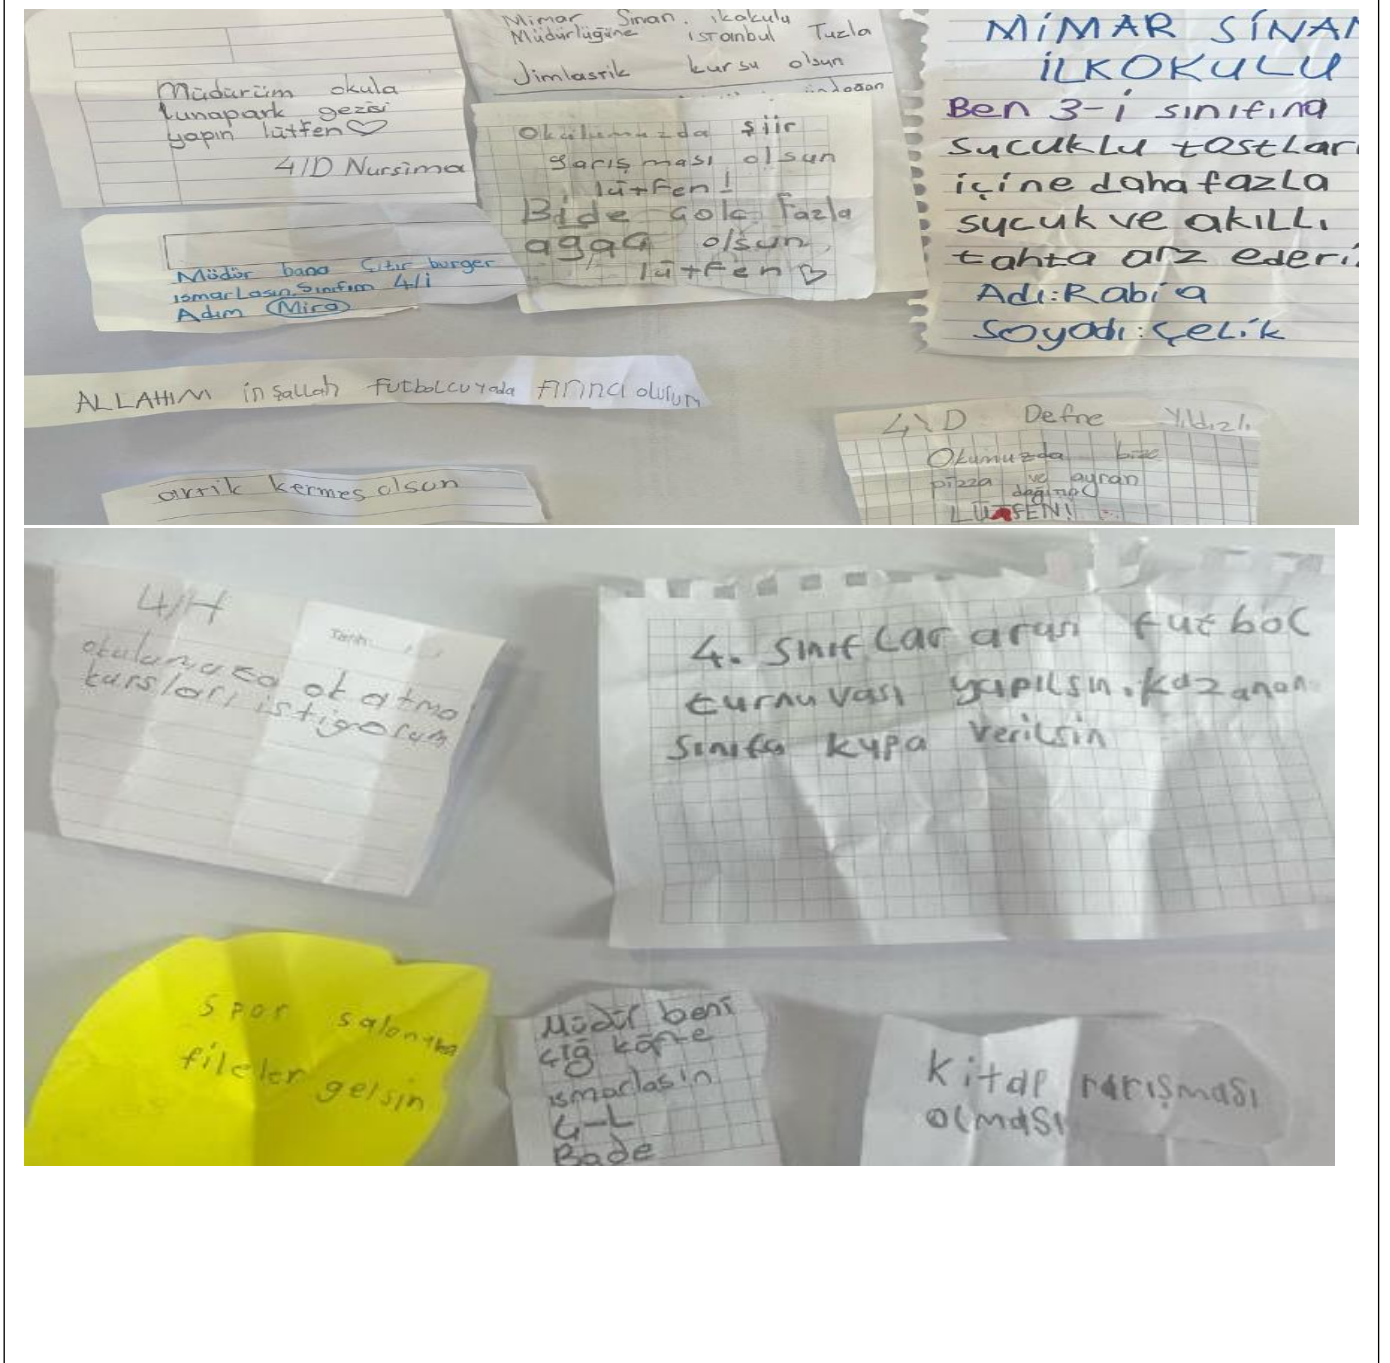 Müdürüm okula
lunapark gezisi
yapın lütfen♡
4/D Nursima
Mimar Sinan. ilkokulu
Müdürlüğüne istanbul Tuzla
Jimlastik kursu olsun
Okulumuzda şiir
yarışması olsun
lütfen!
Bide çok fazla
ağaç olsun,
lütfen♡
MİMAR SİNAN
İLKOKULU
Ben 3-i sınıfına
sucuklu tostların
içine daha fazla
sucuk ve akıllı
tahta arz ederi
Adı: Rabia
Soyadı: Çelik
Müdür bana Çıtır burger
ısmarlasın. Sınıfım 4/i
Adım Mira
ALLAHIM inşallah futbolcu yada fırıncı olurum
artik kermes olsun
4\D Defne Yıldızlı
Okumuzda bize
pizza ve ayran
dağınal
LÜTFEN!
4/H
Tarih:
okulumuza ok atma
kursları istiyorum
4. sınıflar arası futbol
turnuvası yapılsın. kazanan
sınıfa kupa verilsin
Spor salonuna
fileler gelsin
Müdür beni
çiğ köfte
ısmarlasin
4-L
Bade
Kitap yarışması
olması